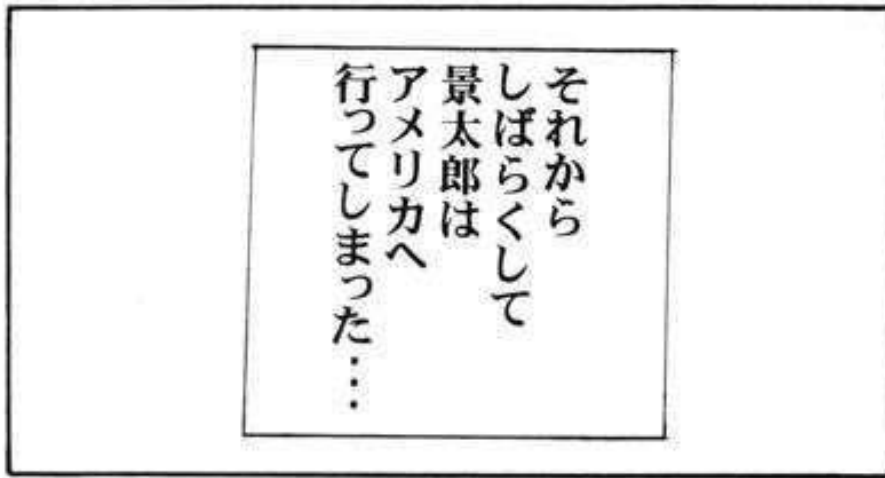 それから
しばらくして
景太郎は
アメリカへ
行ってしまった・・・